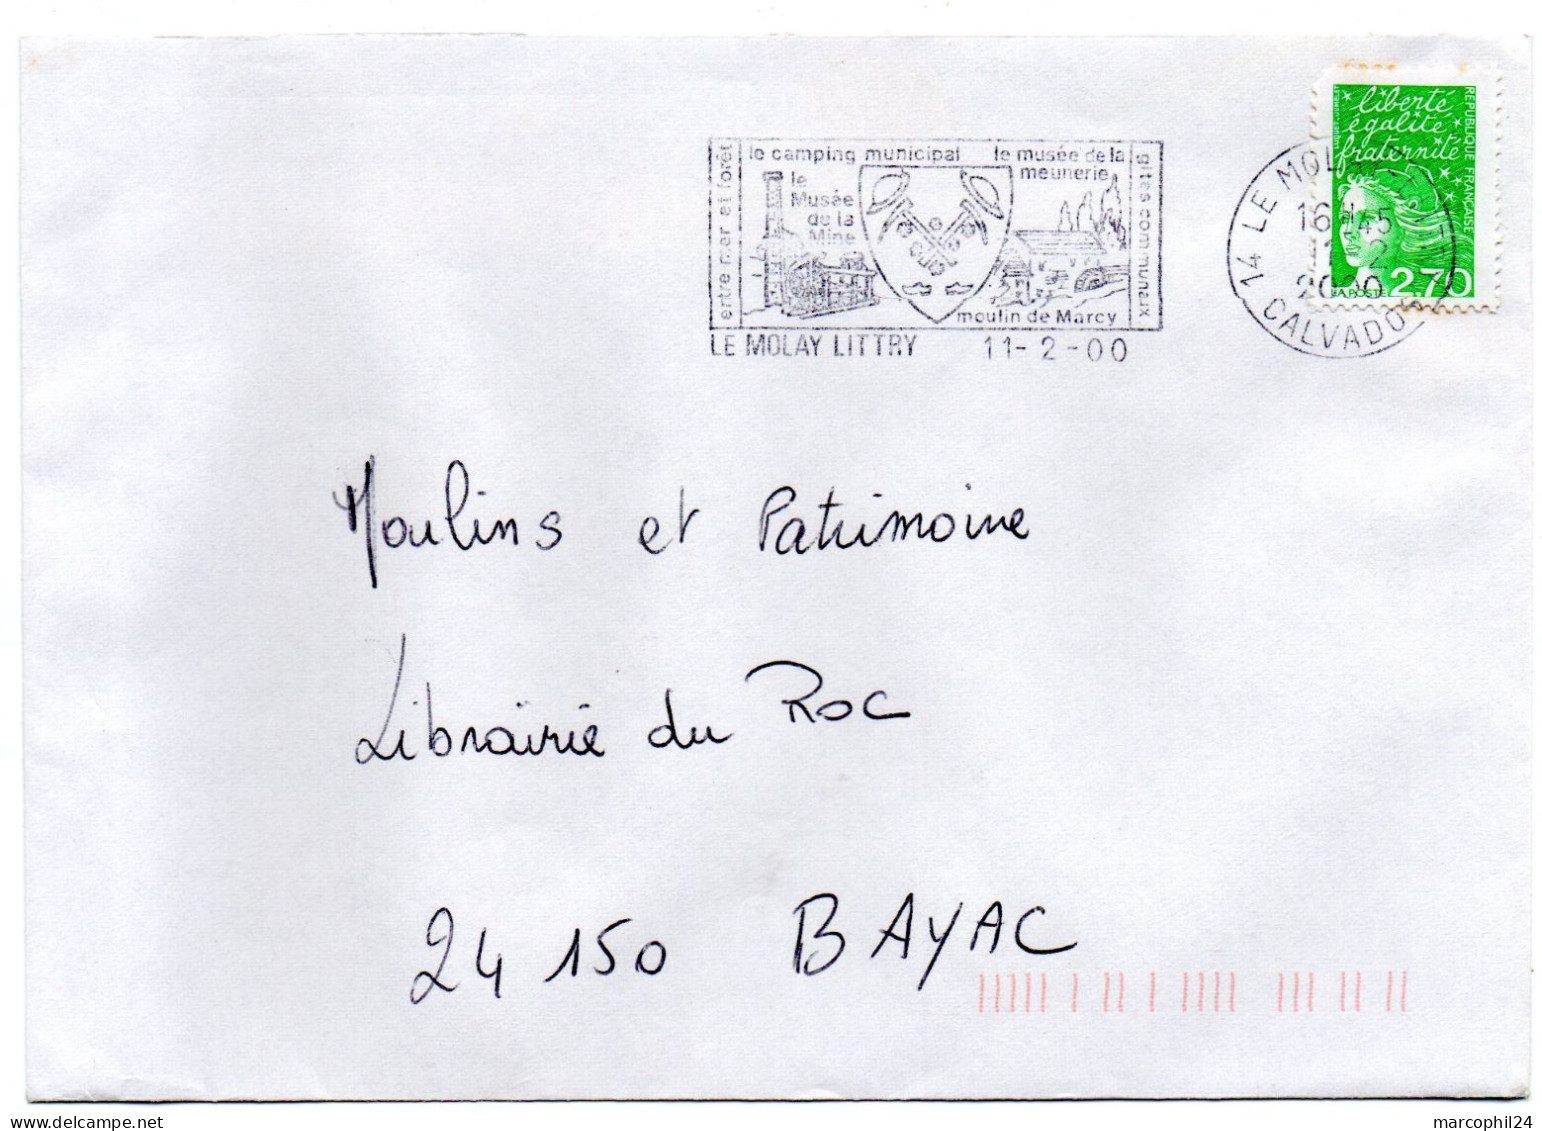 le camping municipal
le musée de la
meunerie
le
Musée
de la
Mine
entre mer et forêt
gîtes communaux
moulin de Marcy
LE MOLAY LITTRY 11-2-00
14 LE MOLAY LITTRY
16H45
11-2
2000
CALVADOS
liberté
égalité
fraternité
RÉPUBLIQUE FRANÇAISE
LA POSTE 2,70
Moulins et Patrimoine
Librairie du Roc
24 150 BAYAC
marcophil24